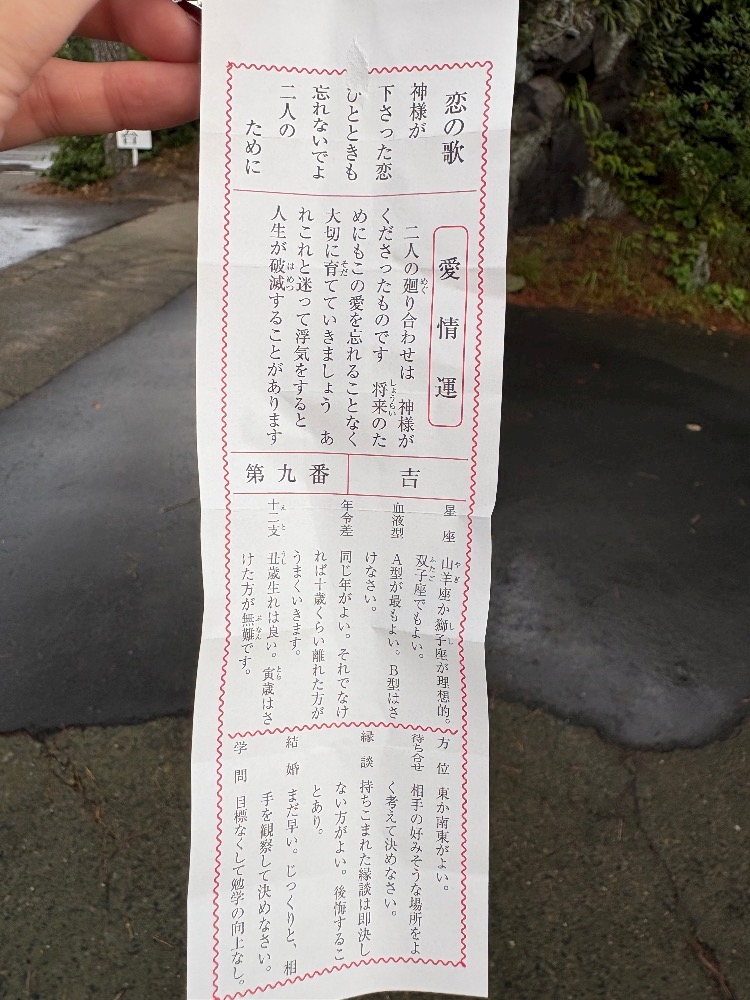 恋の歌
神様が
下さった恋
ひとときも
忘れないでよ
二人の
ために
愛情運
二人の廻り合わせは 神様が
くださったものです 将来のた
めにもこの愛を忘れることなく
大切に育てていきましょう あ
れこれと迷って浮気をすると
人生が破滅することがあります
第九番
吉
星座 山羊座か獅子座が理想的。
双子座でもよい。
血液型 A型が最もよい。B型はさ
けなさい。
年令差 同じ年がよい。それでなけ
れば十歳くらい離れた方が
うまくいきます。
十二支 丑歳生れは良い。寅歳はさ
けた方が無難です。
方位 東か南東がよい。
待ち合せ 相手の好みそうな場所をよ
く考えて決めなさい。
縁談 持ちこまれた縁談は即決し
ない方がよい。後悔するこ
とあり。
結婚 まだ早い。じっくりと、相
手を観察して決めなさい。
学問 目標なくして勉学の向上なし。
台